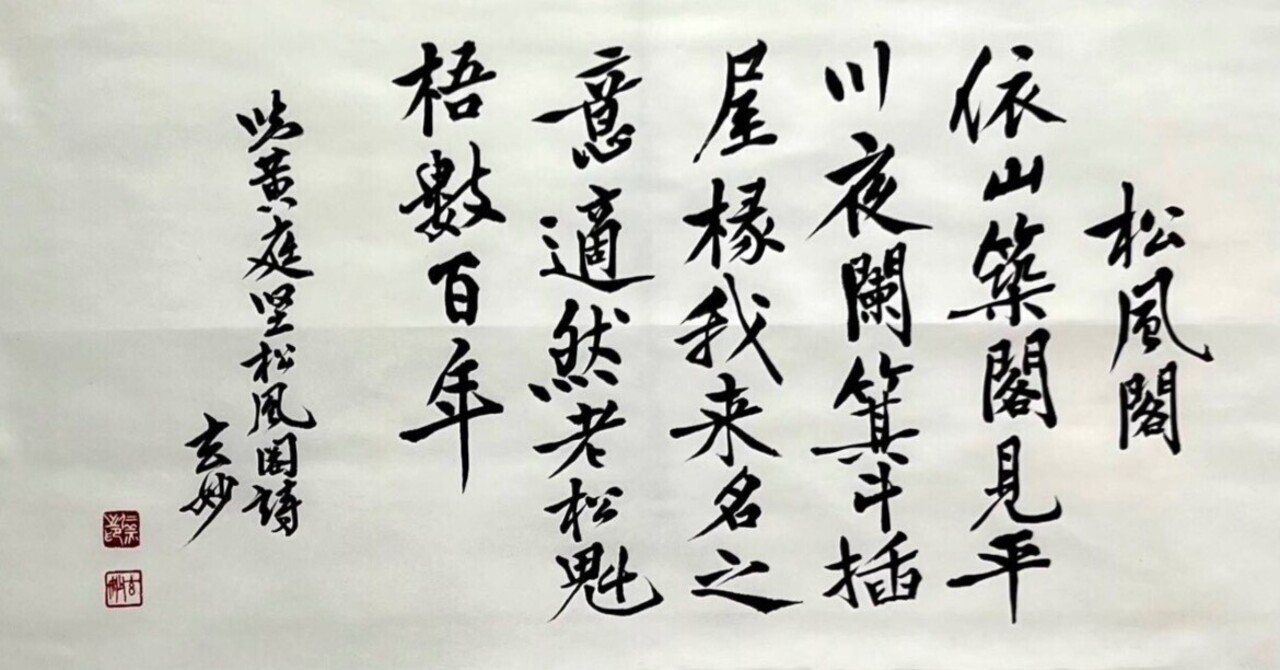 松風閣
依山築閣見平
川夜闌箕斗插
屋椽我来名之
意適然老松魁
梧數百年
临黄庭坚松風閣詩
玄妙